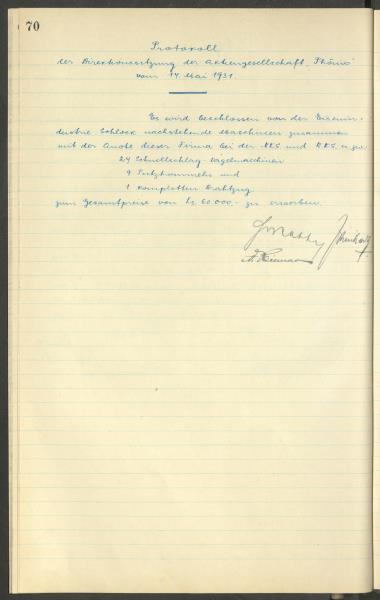 70
Protokoll
der Direktionssitzung der Aktiengesellschaft "Phönix"
vom 14. Mai 1931.
Es wird beschlossen von der Eisenin-
dustrie Schlock nachstehende Maschinen zusammen
mit der Quote dieser Firma bei der und
24 Schnellschlag-Nagelmaschinen
9 Putztrommeln und
1 kompletten Drahtzug
zum Gesamtpreise von Ls 60.000.- zu erwerben.